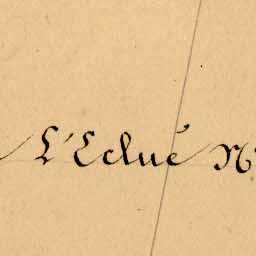 L'Eclué N